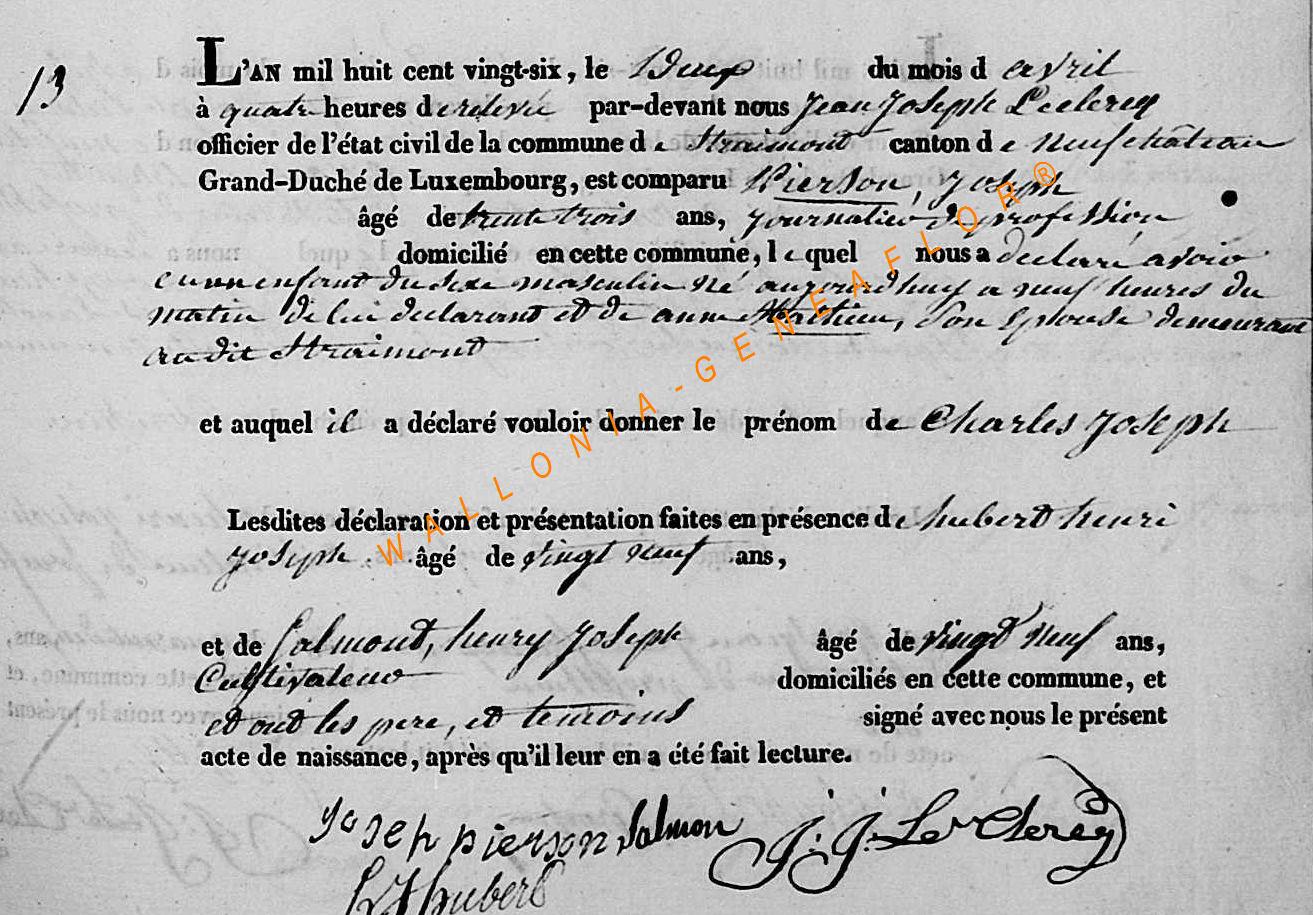 13
L'AN mil huit cent vingt-six, le Deux du mois d avril
à quatre heures de relevée par-devant nous Jean Joseph Leclercq
officier de l'état civil de la commune de Straimont canton de Neufchâteau
Grand-Duché de Luxembourg, est comparu Pierson, Joseph
âgé de trente trois ans, journalier de profession
domicilié en cette commune, lequel nous a declaré avoir
eu un enfant du sexe masculin né aujourdhuy a neuf heures du
matin de lui declarant et de anne Mathieu, son Epouse demeurant
audit Straimont
et auquel il a déclaré vouloir donner le prénom de Charles Joseph
Lesdites déclaration et présentation faites en présence de hubert henri
Joseph âgé de vingt neuf ans,
et de Salmont, henry Joseph âgé de vingt neuf ans,
Cultivateur domiciliés en cette commune, et
et ont les pere, et temoins signé avec nous le présent
acte de naissance, après qu'il leur en a été fait lecture.
Joseph pierson Salmon J. J. Leclercq
hubert
WALLONIA-GENEAFLOR®